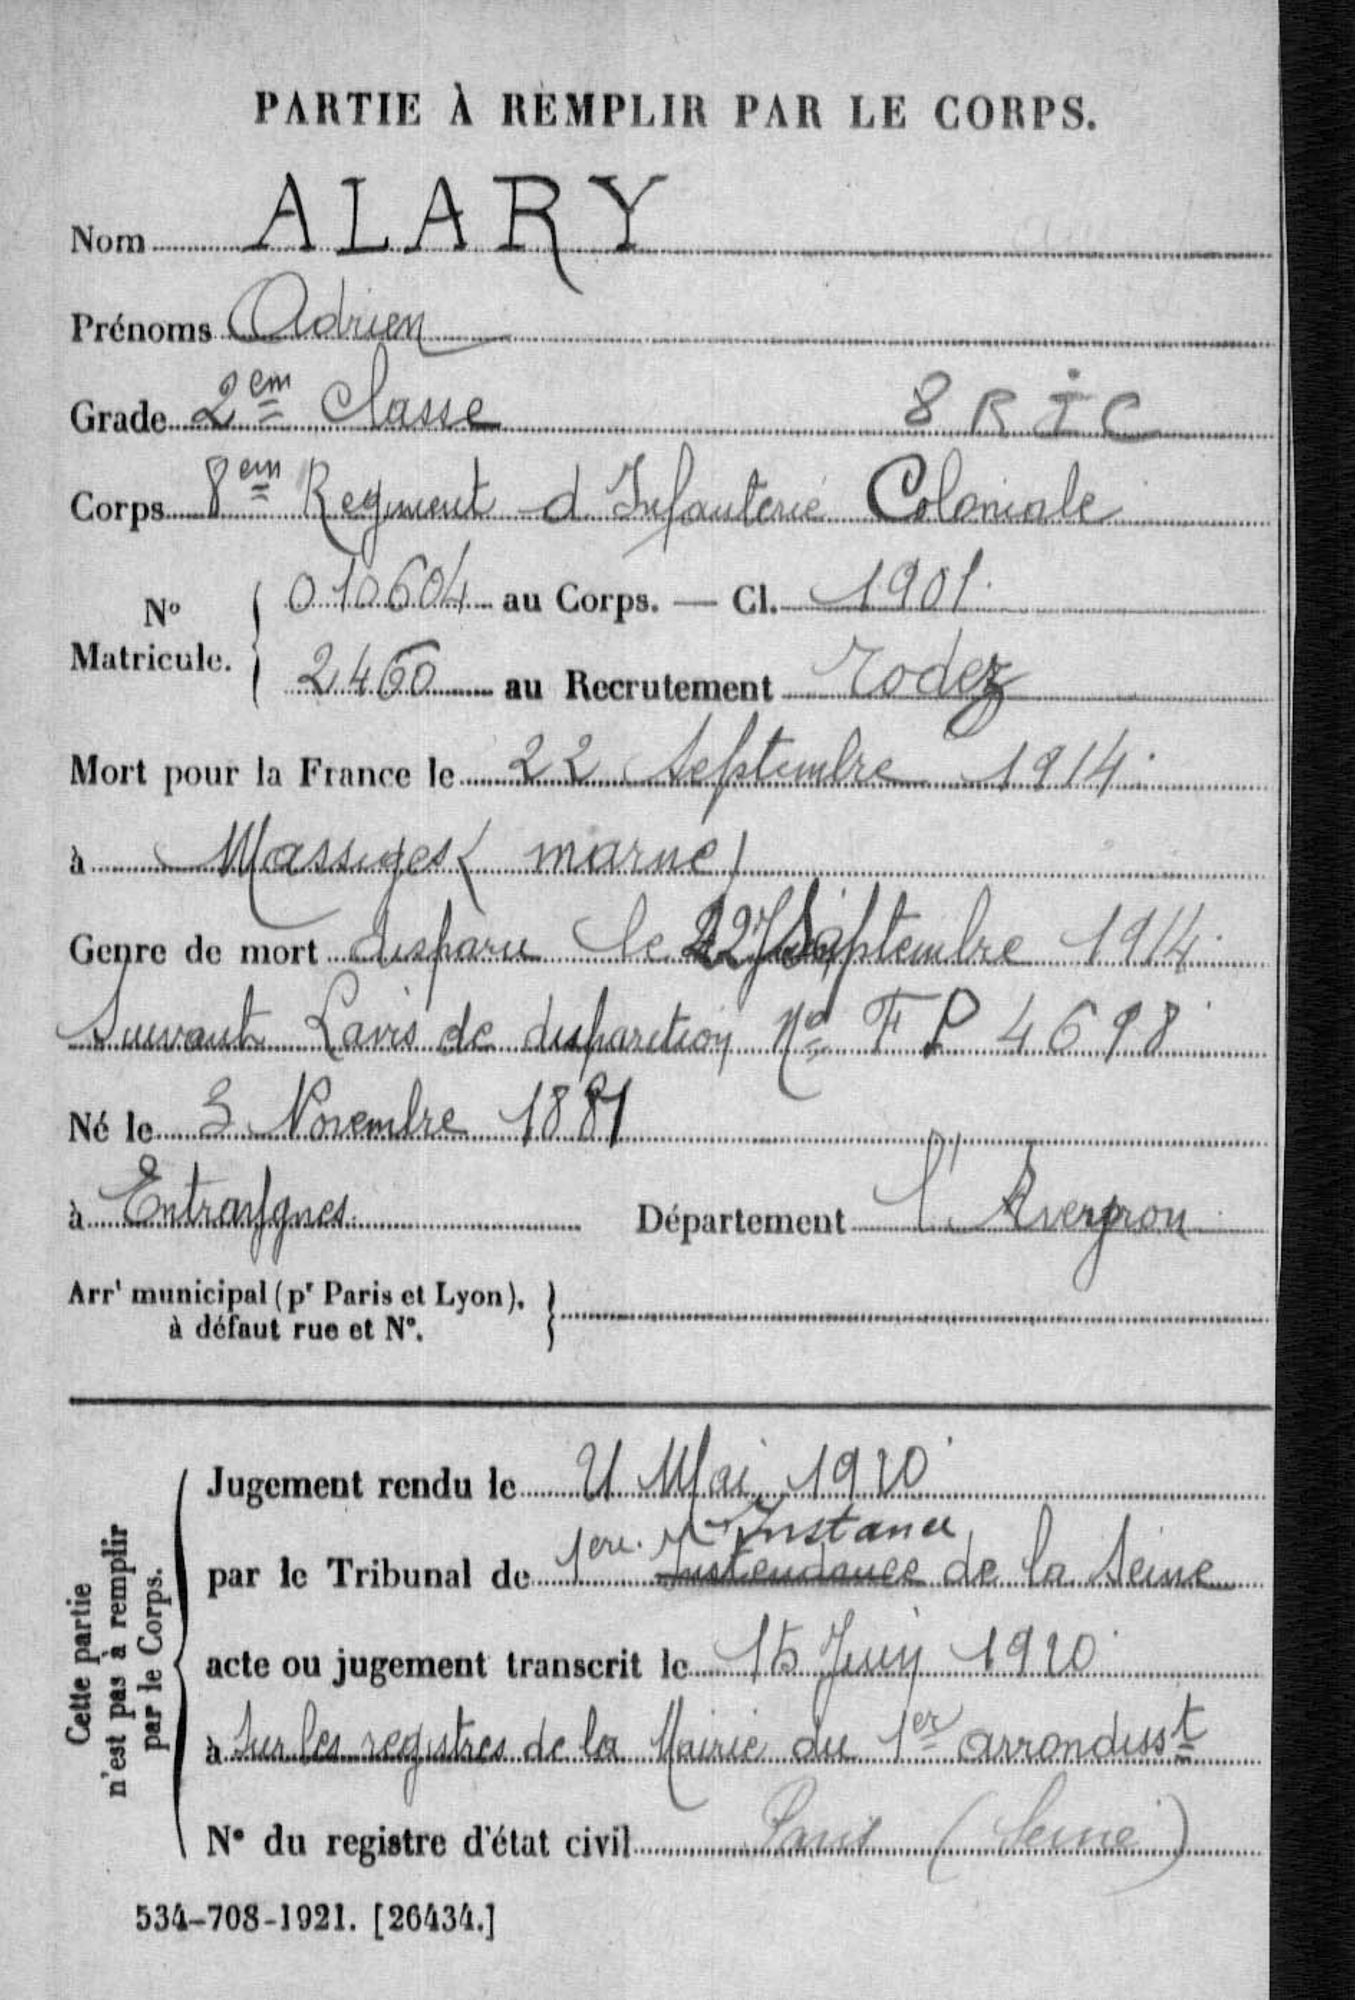 PARTIE À REMPLIR PAR LE CORPS.
Nom ALARY
Prénoms Adrien
Grade 2em Classe 8 R I C
Corps 8em Regiment d Infanterie Coloniale
N° Matricule. 010604 au Corps. — Cl. 1901
2460 au Recrutement Rodez
Mort pour la France le 22 Septembre 1914
à Massiges ( marne )
Genre de mort disparu le 22 Septembre 1914
Suivant Lavis de disparition No FP 4698
Né le 3 Novembre 1881
à Entraygnes Département l'Aveyron
Arrt municipal (pr Paris et Lyon),
à défaut rue et N°.
Cette partie
n'est pas à remplir
par le Corps.
Jugement rendu le 21 Mai 1920
Instance
par le Tribunal de 1ere Instendance de la Seine
acte ou jugement transcrit le 15 Juin 1920
à Sur les registres de la Mairie du 1er arrondisst
N° du registre d'état civil Paris (Seine)
534-708-1921. [26434.]